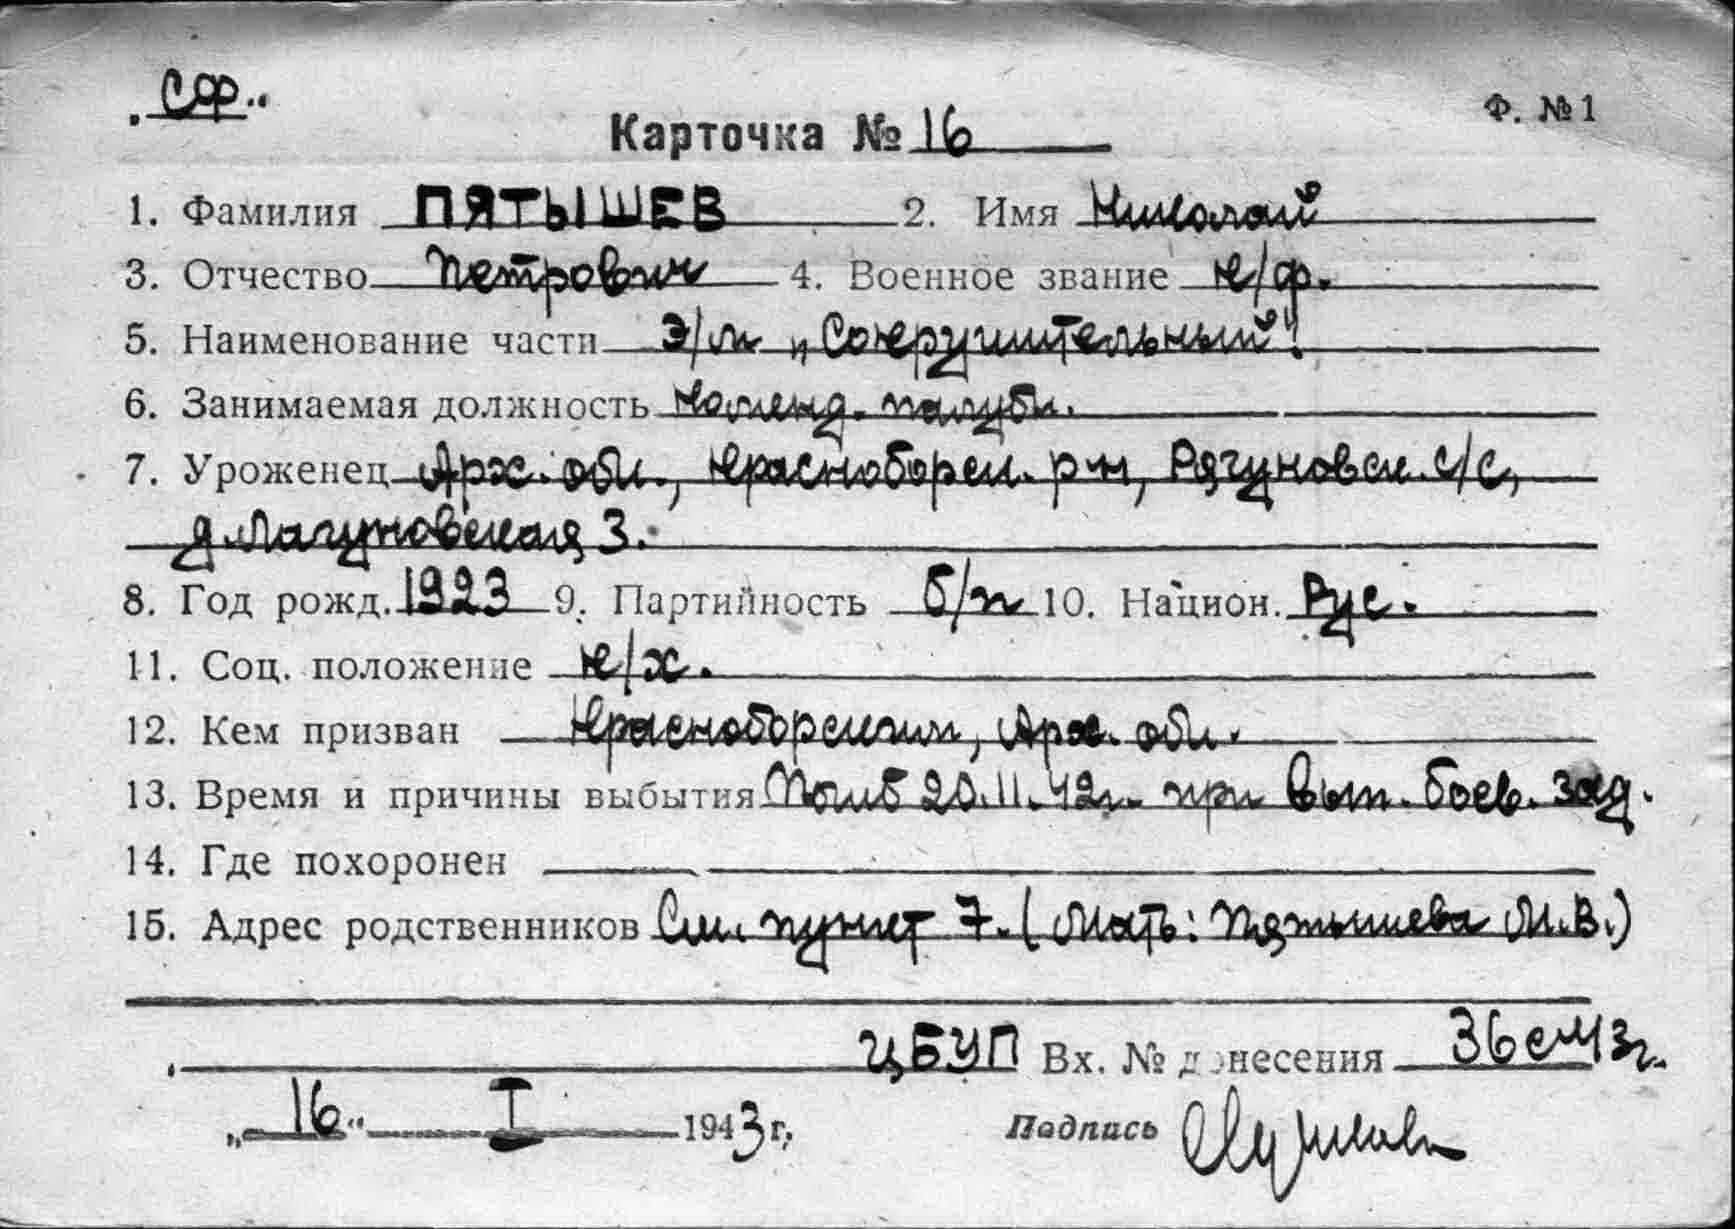 „СФ“
Ф. № 1
Карточка № 16
1. Фамилия ПЯТЫШЕВ 2. Имя Николай
3. Отчество Петрович 4. Военное звание к/ф.
5. Наименование части Э/м „Сокрушительный“.
6. Занимаемая должность команд. палубн.
7. Уроженец Арх. обл., Красноборск. р-н, Рягуновск. с/с,
д. Лагуновская 3.
8. Год рожд. 1923 9. Партийность б/п 10. Национ. Рус.
11. Соц. положение к/х.
12. Кем призван Красноборским, Арх. обл.
13. Время и причины выбытия Погиб 20.11.42г. при вып. боев. зад.
14. Где похоронен
15. Адрес родственников См. пункт 7. (Мать: Пятышева М.В.)
ЦБУП Вх. № донесения 36с-43г.
„16“ I 1943 г.
Подпись